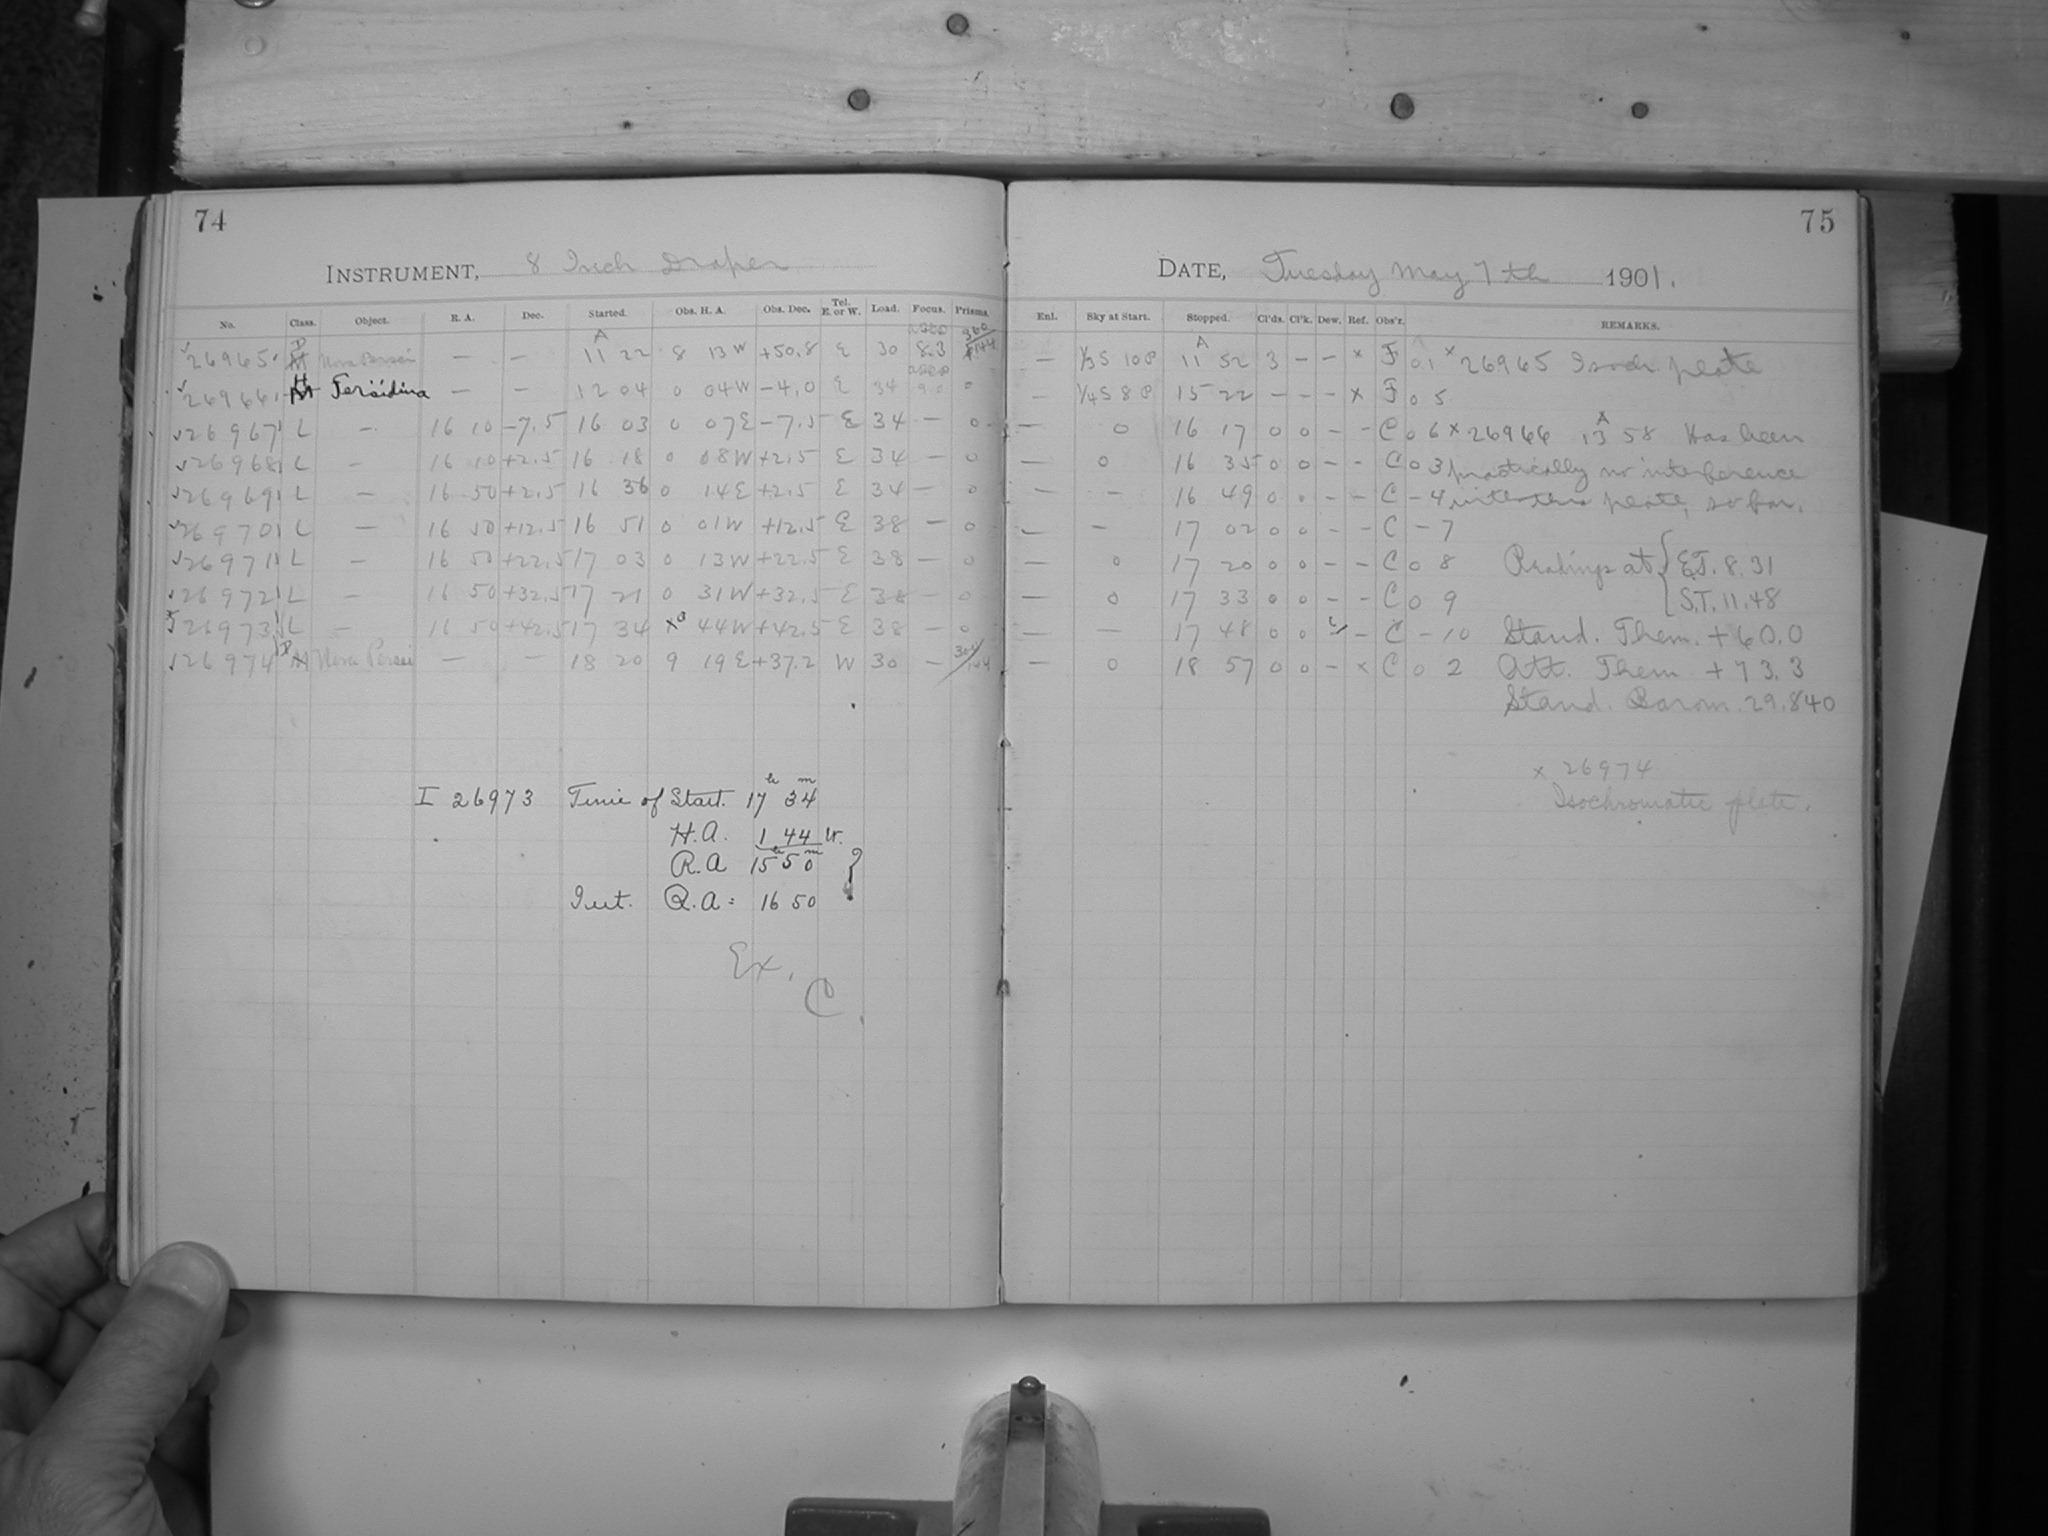 74
INSTRUMENT, 8 Inch Draper
No. Class. Object. R. A. Dec. Started. Obs. H. A. Obs. Dec. Tel. E. or W. Load. Focus. Prisms.
26965 Nova Persei — — A 11 22 8 13 W +50.8 E 30 8.3
26966 H — — 12 04 0 04 W −4.0 E 34 9.0 0
26967 L — 16 10 −7.5 16 03 0 07 E −7.5 E 34 — 0
26968 L — 16 10 +2.5 16 18 0 08 W +2.5 E 34 — 0
26969 L — 16 50 +2.5 16 36 0 14 E +2.5 E 34 — 0
26970 L — 16 50 +12.5 16 51 0 01 W +12.5 E 38 — 0
26971 L — 16 50 +22.5 17 03 0 13 W +22.5 E 38 — 0
26972 L — 16 50 +32.5 17 21 0 31 W +32.5 E 38 — 0
26973 L — 16 50 +42.5 17 34 x0 44 W +42.5 E 38 — 0
26974 Nova Persei — — 18 20 9 19 E +37.2 W 30 —
I 26973 Time of Start. 17h 34m
H.A. 1 44 W.
R.A 15h 50m
Int. R.A = 16 50
Ex.
C.
75
DATE, Tuesday May 7th 1901.
Enl. Sky at Start. Stopped. Cl'ds. Cl'k. Dew. Ref. Obs'r. REMARKS.
— 1/3 S 10 P A 11 52 3 — — x F 0 1 x 26965 Isoch. plate
— 1/4 S 8 P 15 22 — — — x F 0 5
0 16 17 0 0 — — C 0 6 x 26966 A 13 58 Has been
— 0 16 35 0 0 — — C 0 3 practically no interference
— — 16 49 0 0 — — C — 4 with this plate, so far.
— — 17 02 0 0 — — C — 7
— 0 17 20 0 0 — — C 0 8 Readings at { E.T. 8.31
— 0 17 33 0 0 — — C 0 9 S.T. 11.48
— — 17 48 0 0 — C — 10 Stand. Them. +60.0
— 0 18 57 0 0 — x C 0 2 Att. Them +73.3
Stand. Barom. 29.840
x 26974
Isochromatic plate.